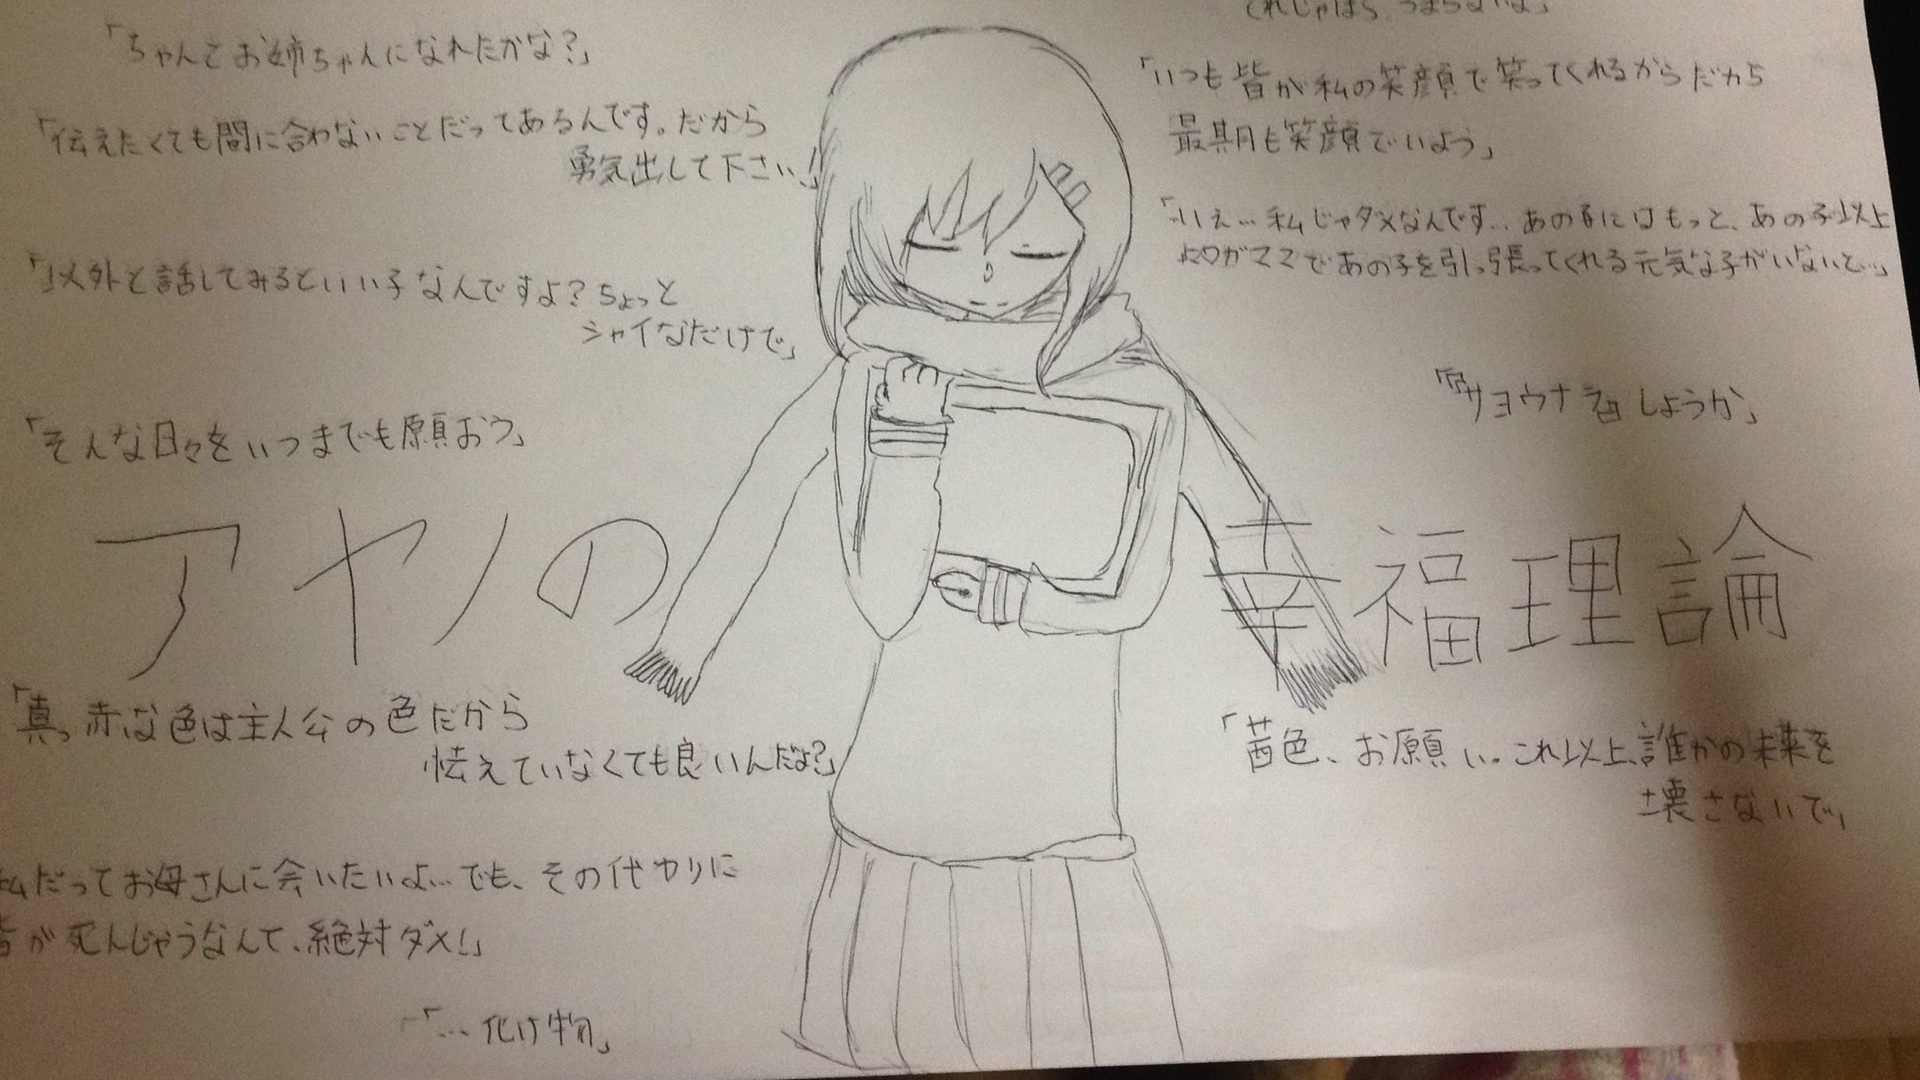 「ちゃんとお姉ちゃんになれたかな？」
「伝えたくても間に合わないことだってあるんです。だから
勇気出して下さい！」
「以外と話してみるといい子なんですよ？ちょっと
シャイなだけで」
「そんな日々をいつまでも願おう」
くれじゃほら、つまらないよ」
「いつも皆が私の笑顔で笑ってくれるからだから
最期も笑顔でいよう」
「いえ…私じゃダメなんです…あの子にはもっと、あの子以上
ガママであの子を引っ張ってくれる元気な子がいないと…」
サヨウナラ しようか」
アヤノの幸福理論
「真っ赤な色は主人公の色だから
怯えていなくても良いんだよ？」
「茜色、お願い。これ以上、誰かの未来を
壊さないで」
私だってお母さんに会いたいよ…でも、その代ワりに
皆が死んじゃうなんて、絶対ダメ！」
「…化け物」